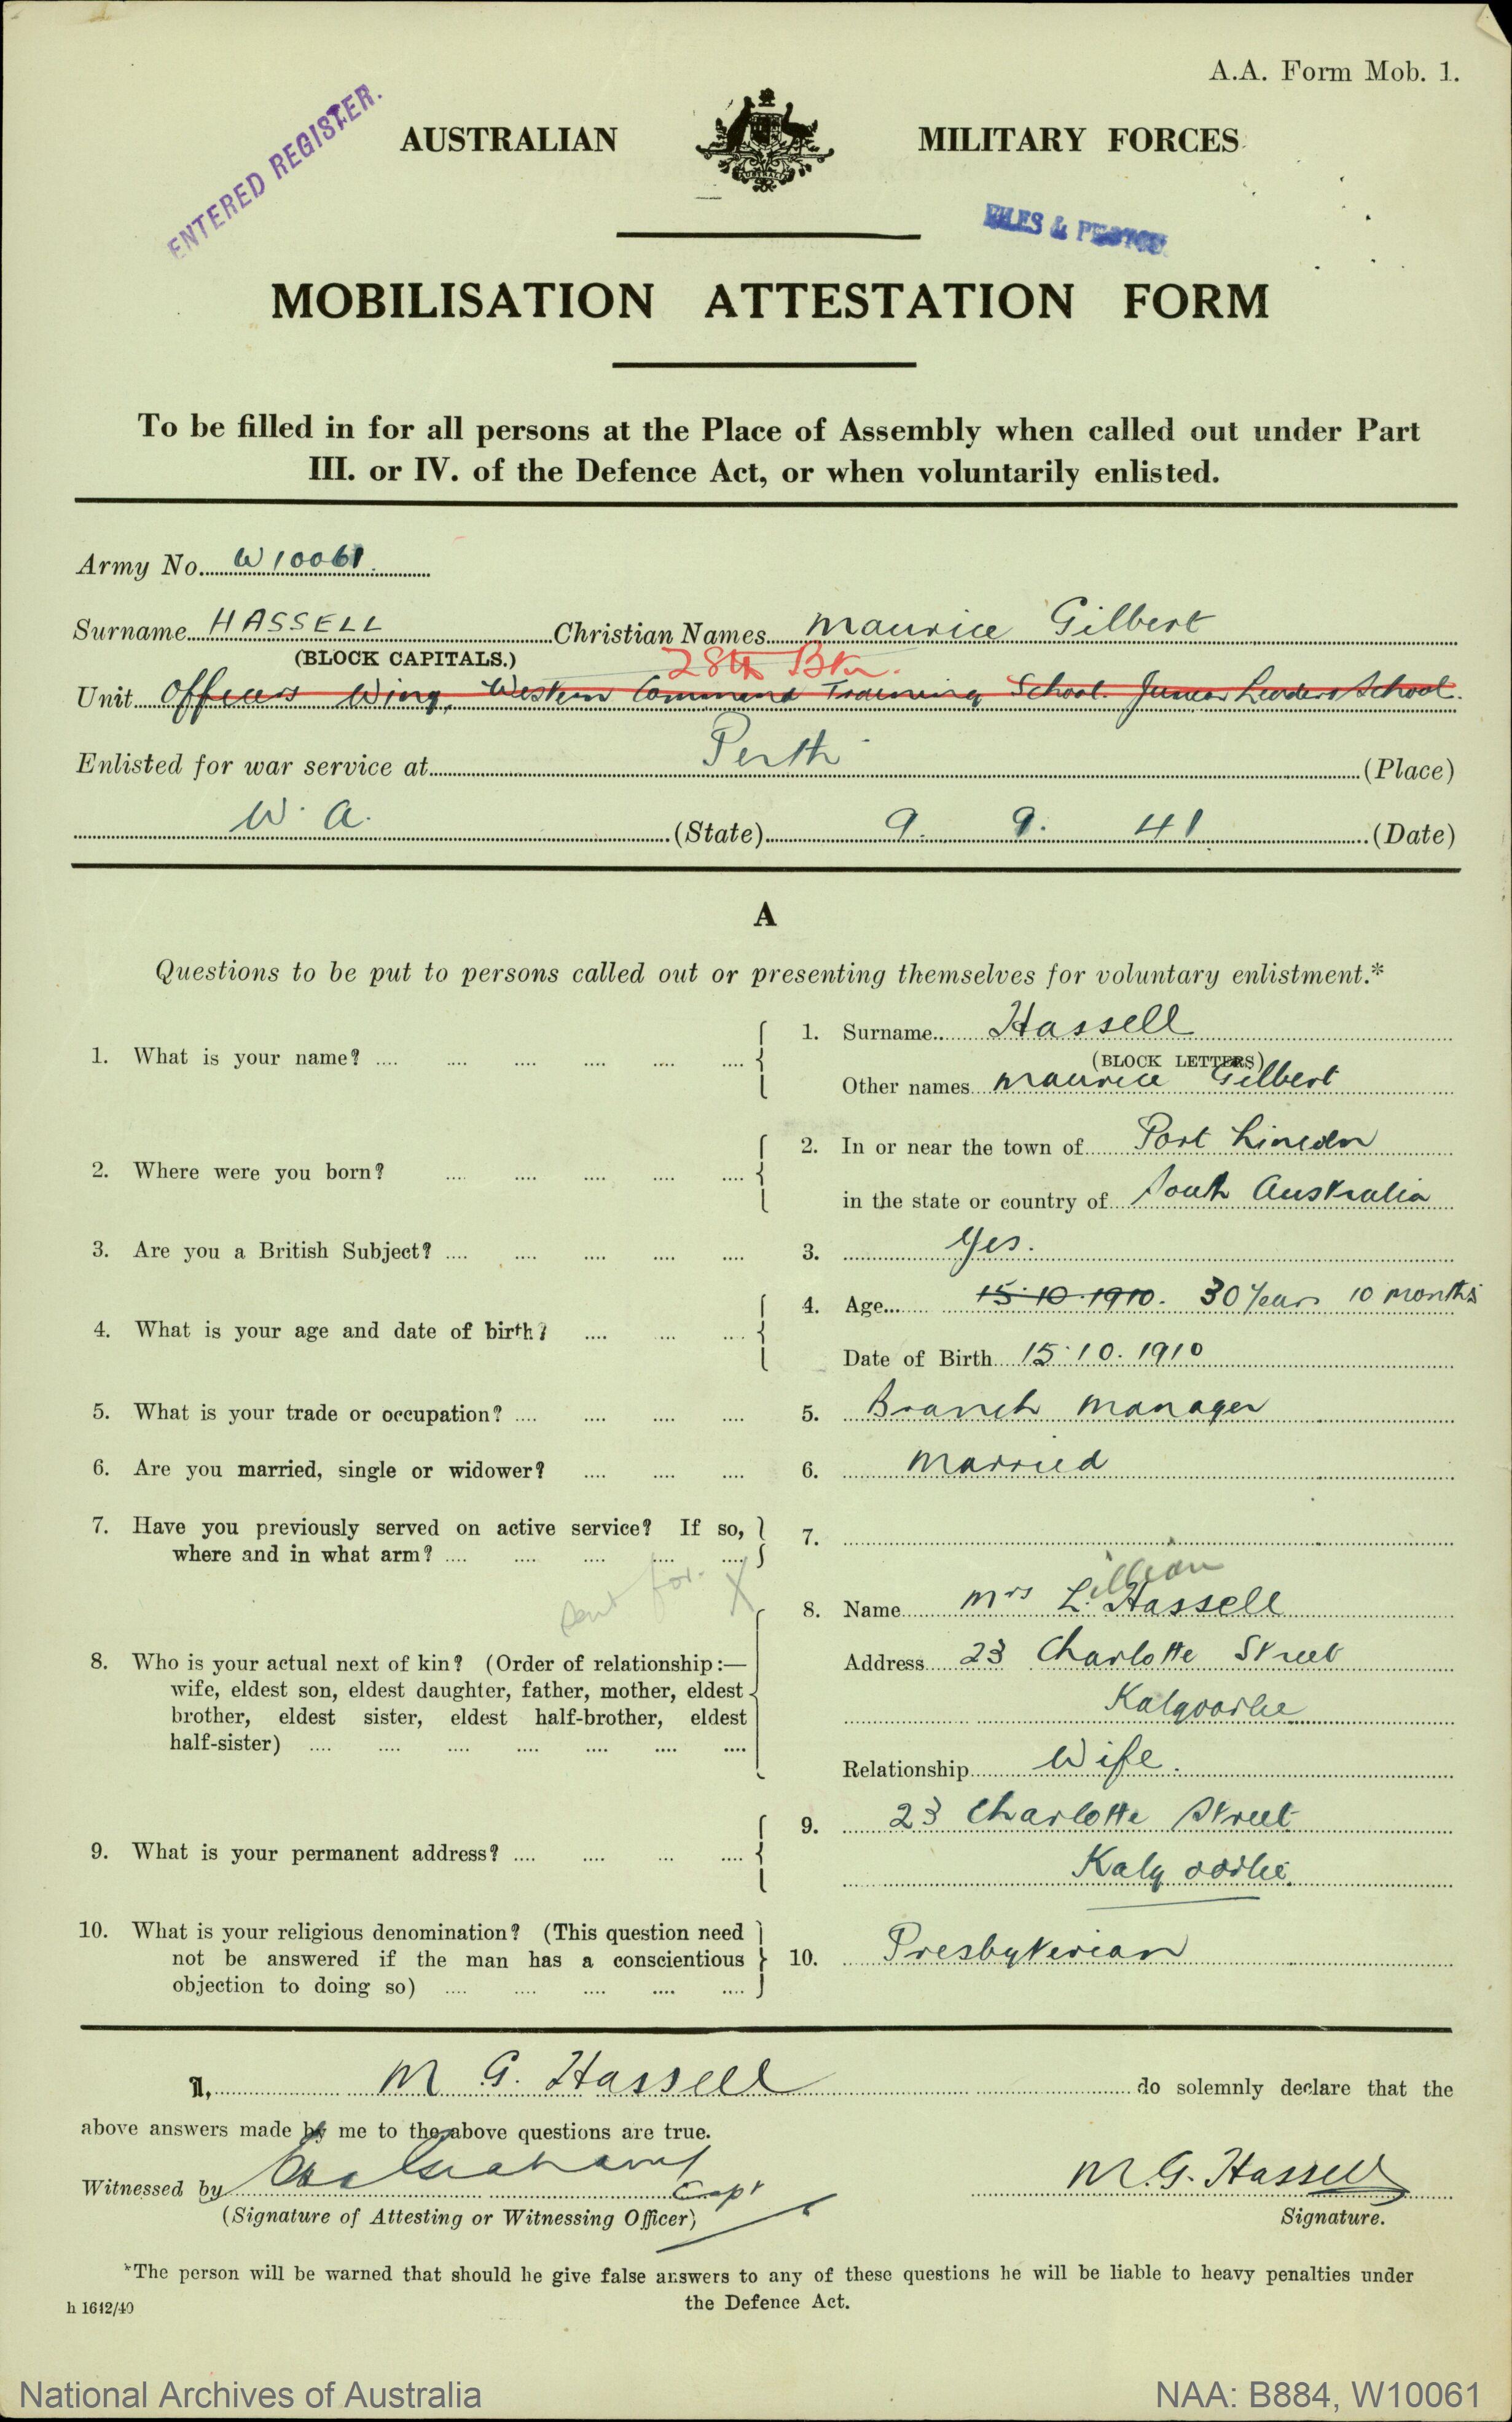 A.A. Form Mob. 1.
ENTERED REGISTER.
AUSTRALIAN MILITARY FORCES
AUSTRALIA
FILES &
MOBILISATION ATTESTATION FORM
To be filled in for all persons at the Place of Assembly when called out under Part
III. or IV. of the Defence Act, or when voluntarily enlisted.
Army No. W10061.
Surname HASSELL Christian Names Maurice Gilbert
(BLOCK CAPITALS.) 28th Btn.
Unit Officers Wing, Western Command Training School. Junior Leaders School.
Enlisted for war service at Perth (Place)
W. A. (State) 9. 9. 41 (Date)
A
Questions to be put to persons called out or presenting themselves for voluntary enlistment.*
1. What is your name? 1. Surname Hassell
(BLOCK LETTERS)
Other names Maurice Gilbert
2. Where were you born? 2. In or near the town of Port Lincoln
in the state or country of South Australia
3. Are you a British Subject? 3. Yes.
4. What is your age and date of birth? 4. Age 15.10.1910. 30 Years 10 months
Date of Birth 15.10.1910
5. What is your trade or occupation? 5. Branch Manager
6. Are you married, single or widower? 6. Married
7. Have you previously served on active service? If so, 7.
where and in what arm?
sent for. X
8. Name Mrs L. illian Hassell
8. Who is your actual next of kin? (Order of relationship:— Address 23 Charlotte Street
wife, eldest son, eldest daughter, father, mother, eldest
brother, eldest sister, eldest half-brother, eldest Kalgoorlie
half-sister)
Relationship Wife.
9. What is your permanent address? 9. 23 Charlotte Street
Kalgoorlie.
10. What is your religious denomination? (This question need
not be answered if the man has a conscientious 10. Presbyterian
objection to doing so)
I, M G. Hassell do solemnly declare that the
above answers made by me to the above questions are true.
Witnessed by Capt M.G. Hassell
(Signature of Attesting or Witnessing Officer) Signature.
*The person will be warned that should he give false answers to any of these questions he will be liable to heavy penalties under
the Defence Act.
h 1642/40
National Archives of Australia NAA: B884, W10061